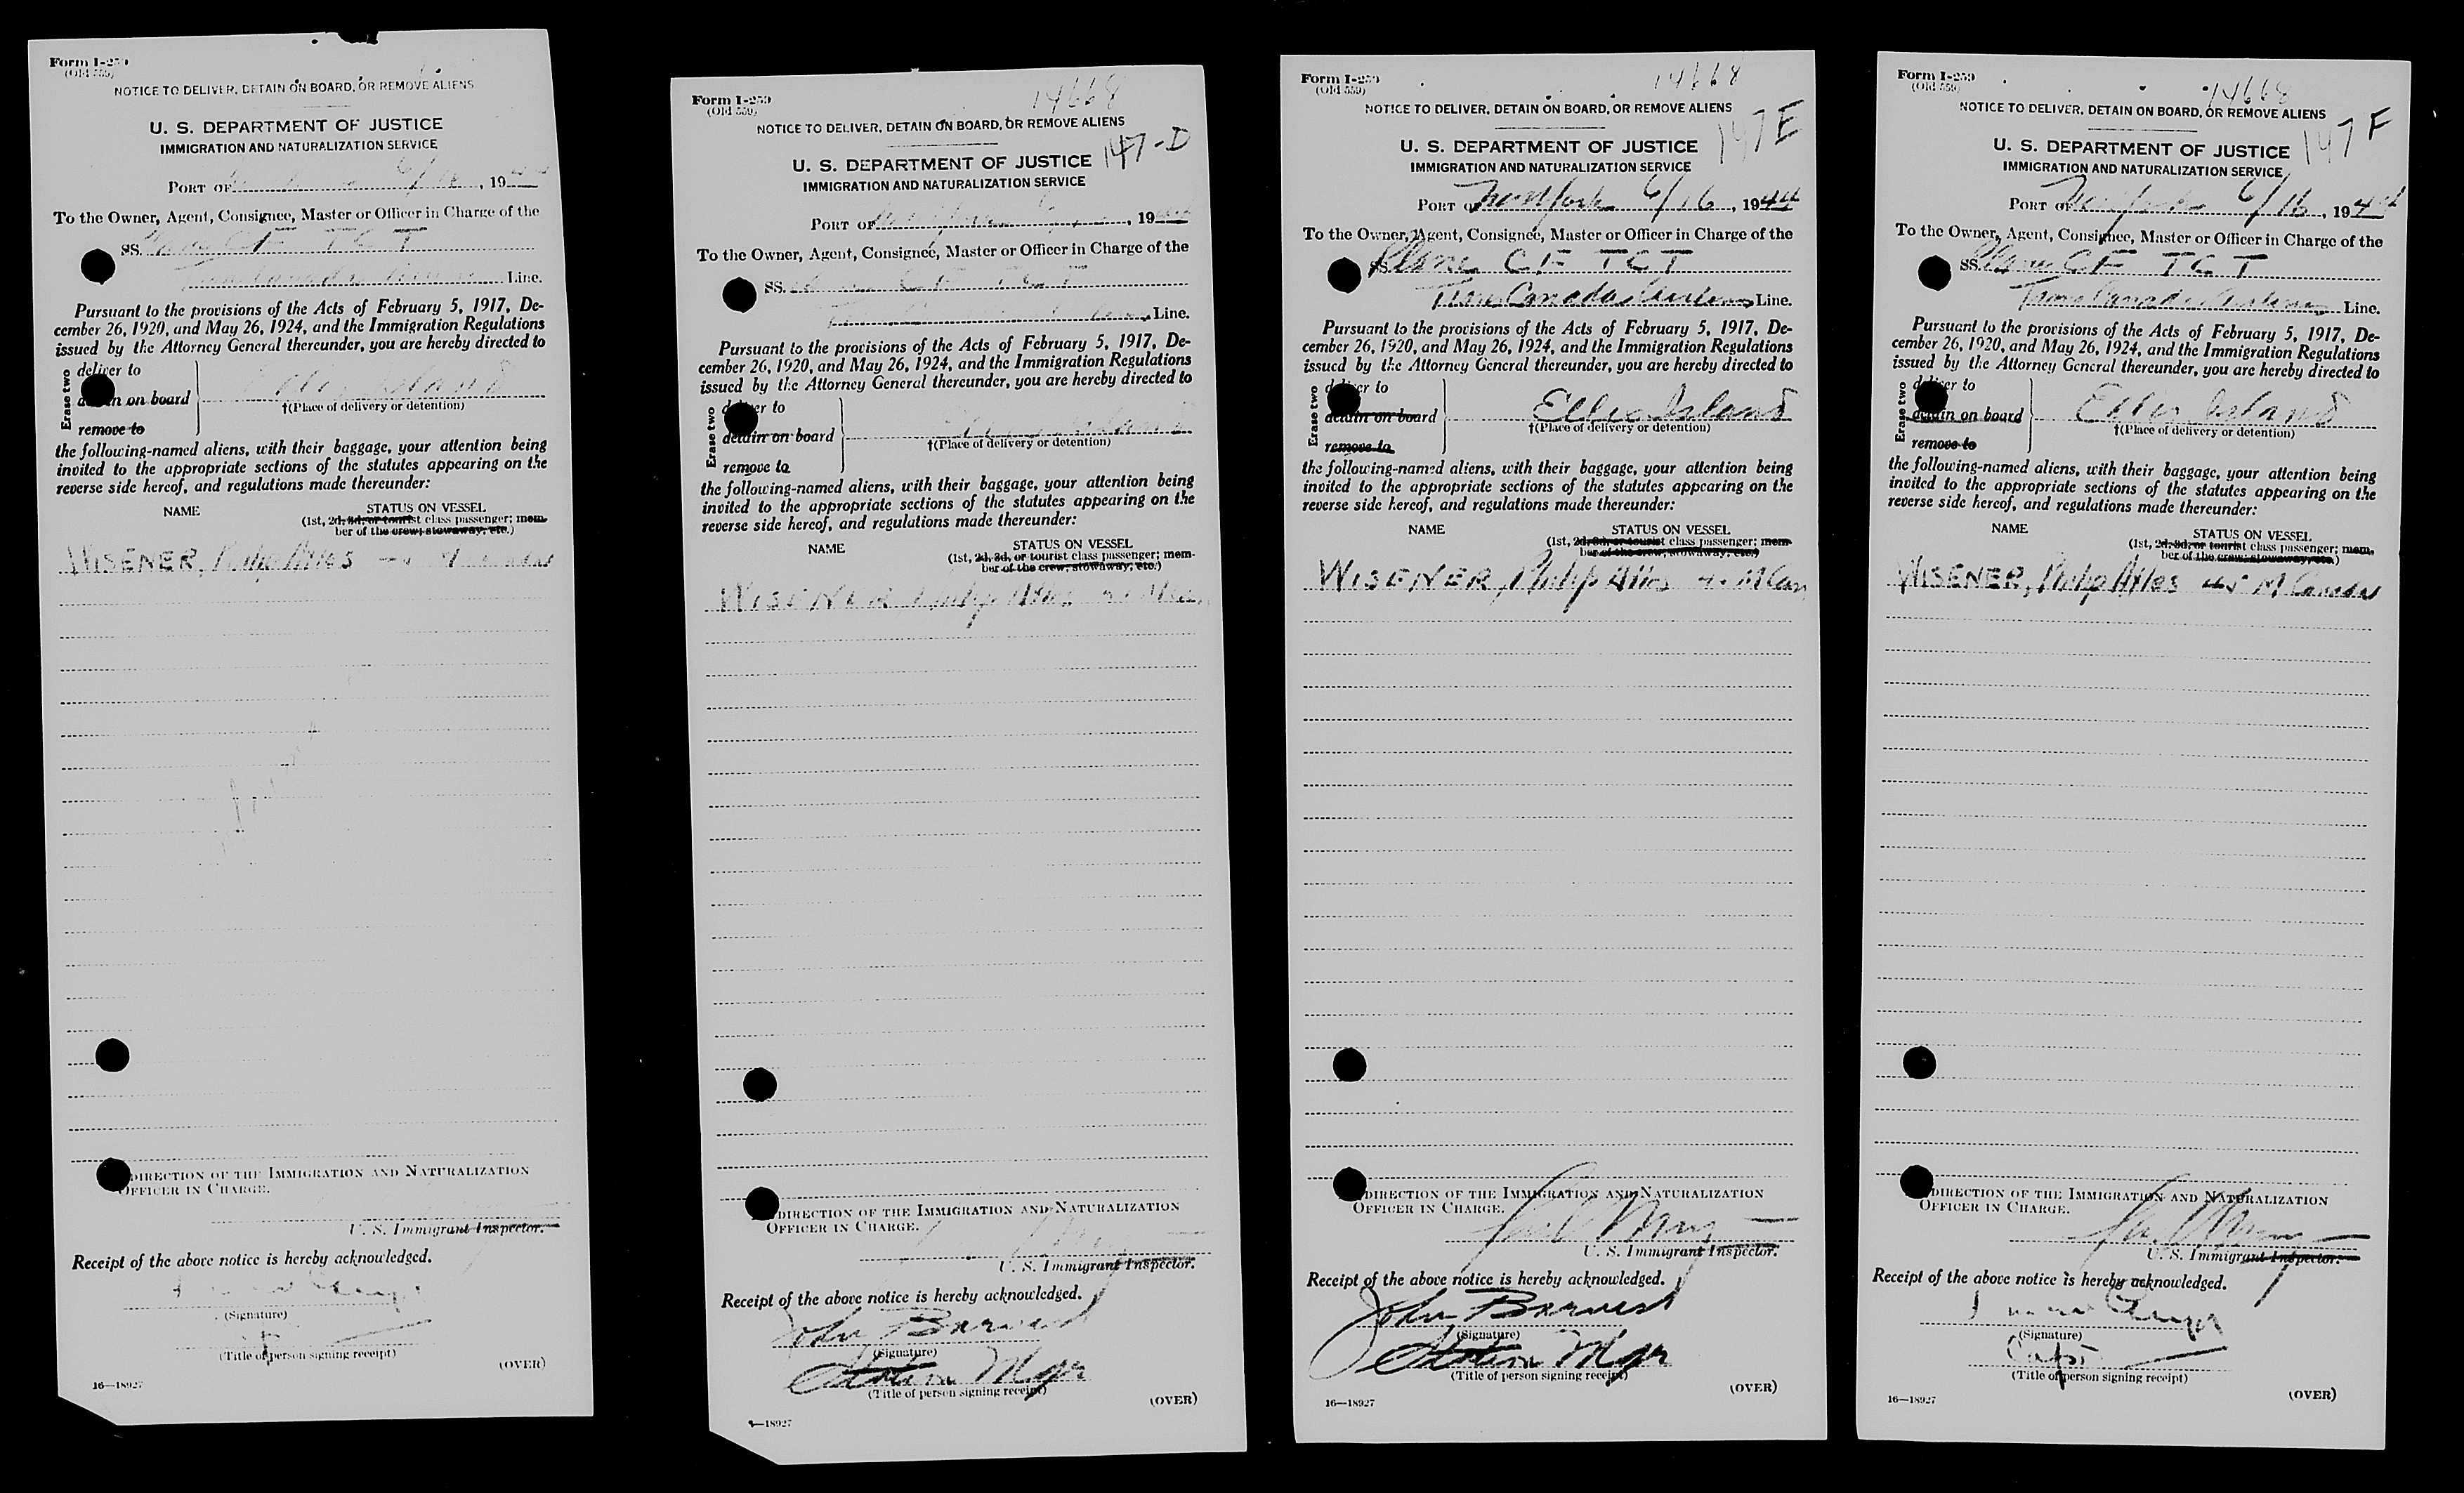 Form I-259
(Old 559)
NOTICE TO DELIVER, DETAIN ON BOARD, OR REMOVE ALIENS
U. S. DEPARTMENT OF JUSTICE
IMMIGRATION AND NATURALIZATION SERVICE
PORT OF 6/16, 19
To the Owner, Agent, Consignee, Master or Officer in Charge of the
SS. CF TCT
Line.
Pursuant to the provisions of the Acts of February 5, 1917, De-
cember 26, 1920, and May 26, 1924, and the Immigration Regulations
issued by the Attorney General thereunder, you are hereby directed to
Erase two
deliver to
on board
remove to
Ellis Island
†(Place of delivery or detention)
the following-named aliens, with their baggage, your attention being
invited to the appropriate sections of the statutes appearing on the
reverse side hereof, and regulations made thereunder:
NAME
STATUS ON VESSEL
(1st, 2d, 3d, or tourist class passenger; mem-
ber of the crew; stowaway, etc.)
WISENER, Philip
DIRECTION OF THE IMMIGRATION AND NATURALIZATION
OFFICER IN CHARGE.
U. S. Immigrant Inspector.
Receipt of the above notice is hereby acknowledged.
(Signature)
(Title of person signing receipt)
(OVER)
16—18927
Form I-259
(Old 559)
14668
NOTICE TO DELIVER, DETAIN ON BOARD, OR REMOVE ALIENS
147-D
U. S. DEPARTMENT OF JUSTICE
IMMIGRATION AND NATURALIZATION SERVICE
PORT OF , 19
To the Owner, Agent, Consignee, Master or Officer in Charge of the
SS. CF TCT
Line.
Pursuant to the provisions of the Acts of February 5, 1917, De-
cember 26, 1920, and May 26, 1924, and the Immigration Regulations
issued by the Attorney General thereunder, you are hereby directed to
Erase two
to
detain on board
remove to
Island
†(Place of delivery or detention)
the following-named aliens, with their baggage, your attention being
invited to the appropriate sections of the statutes appearing on the
reverse side hereof, and regulations made thereunder:
NAME
STATUS ON VESSEL
(1st, 2d, 3d, or tourist class passenger; mem-
ber of the crew; stowaway, etc.)
WISENER, Philip
DIRECTION OF THE IMMIGRATION AND NATURALIZATION
OFFICER IN CHARGE.
U. S. Immigrant Inspector.
Receipt of the above notice is hereby acknowledged.
John
(Signature)
Station Mgr
(Title of person signing receipt)
(OVER)
—18927
Form I-259
(Old 559)
14668
NOTICE TO DELIVER, DETAIN ON BOARD, OR REMOVE ALIENS
147 E
U. S. DEPARTMENT OF JUSTICE
IMMIGRATION AND NATURALIZATION SERVICE
PORT OF New York 6/16, 1944
To the Owner, Agent, Consignee, Master or Officer in Charge of the
SS. Plane CF TCT
Trans Canada Airlines Line.
Pursuant to the provisions of the Acts of February 5, 1917, De-
cember 26, 1920, and May 26, 1924, and the Immigration Regulations
issued by the Attorney General thereunder, you are hereby directed to
Erase two
deliver to
detain on board
remove to
Ellis Island
†(Place of delivery or detention)
the following-named aliens, with their baggage, your attention being
invited to the appropriate sections of the statutes appearing on the
reverse side hereof, and regulations made thereunder:
NAME
STATUS ON VESSEL
(1st, 2d, 3d, or tourist class passenger; mem-
ber of the crew; stowaway, etc.)
WISENER, Philip
DIRECTION OF THE IMMIGRATION AND NATURALIZATION
OFFICER IN CHARGE.
U. S. Immigrant Inspector.
Receipt of the above notice is hereby acknowledged.
John
(Signature)
Station Mgr
(Title of person signing receipt)
(OVER)
16—18927
Form I-259
(Old 559)
14668
NOTICE TO DELIVER, DETAIN ON BOARD, OR REMOVE ALIENS
147 F
U. S. DEPARTMENT OF JUSTICE
IMMIGRATION AND NATURALIZATION SERVICE
PORT OF New York 6/16, 1944
To the Owner, Agent, Consignee, Master or Officer in Charge of the
SS. Plane CF TCT
Trans Canada Airlines Line.
Pursuant to the provisions of the Acts of February 5, 1917, De-
cember 26, 1920, and May 26, 1924, and the Immigration Regulations
issued by the Attorney General thereunder, you are hereby directed to
Erase two
deliver to
detain on board
remove to
Ellis Island
†(Place of delivery or detention)
the following-named aliens, with their baggage, your attention being
invited to the appropriate sections of the statutes appearing on the
reverse side hereof, and regulations made thereunder:
NAME
STATUS ON VESSEL
(1st, 2d, 3d, or tourist class passenger; mem-
ber of the crew; stowaway, etc.)
WISENER, Philip M Canada
DIRECTION OF THE IMMIGRATION AND NATURALIZATION
OFFICER IN CHARGE.
U. S. Immigrant Inspector.
Receipt of the above notice is hereby acknowledged.
(Signature)
Capt
(Title of person signing receipt)
(OVER)
16—18927